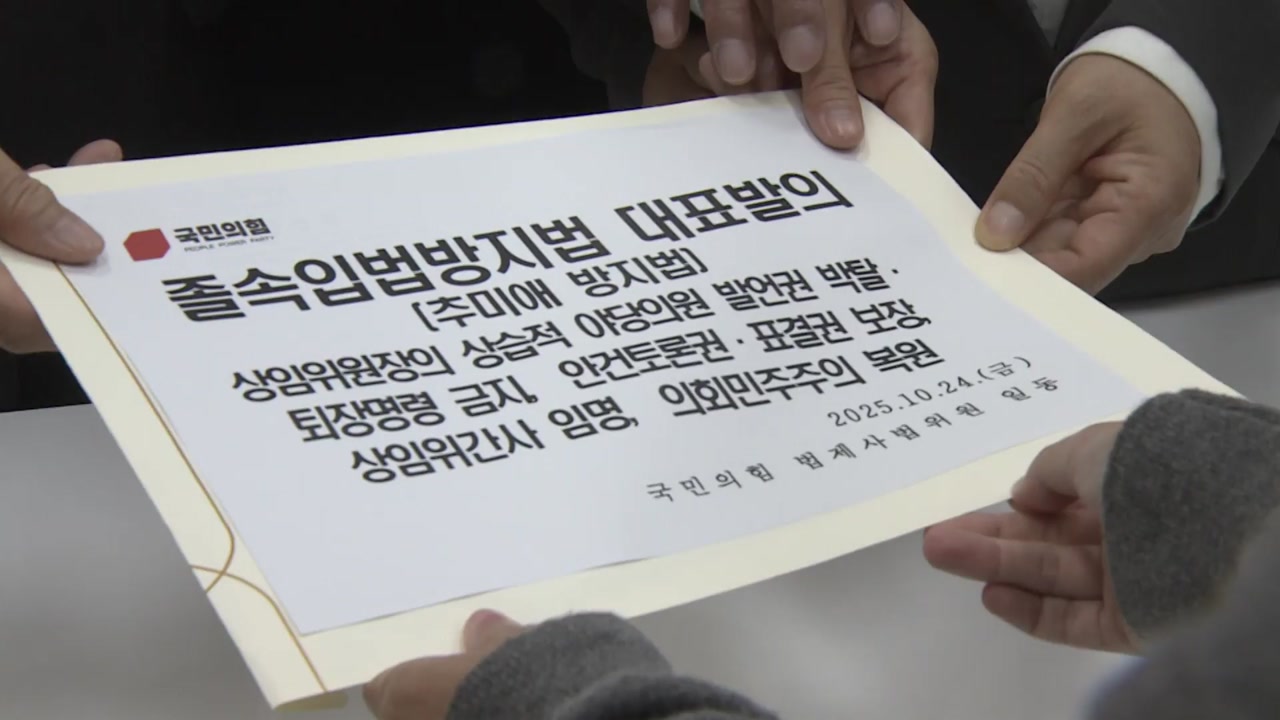 국민의힘
PEOPLE POWER PARTY
졸속입법방지법 대표발의
(추미애 방지법)
상임위원장의 상습적 야당의원 발언권 박탈·
퇴장명령 금지, 안건토론권·표결권 보장,
상임위간사 임명, 의회민주주의 복원
2025.10.24.(금)
국민의힘 법제사법위원 일동